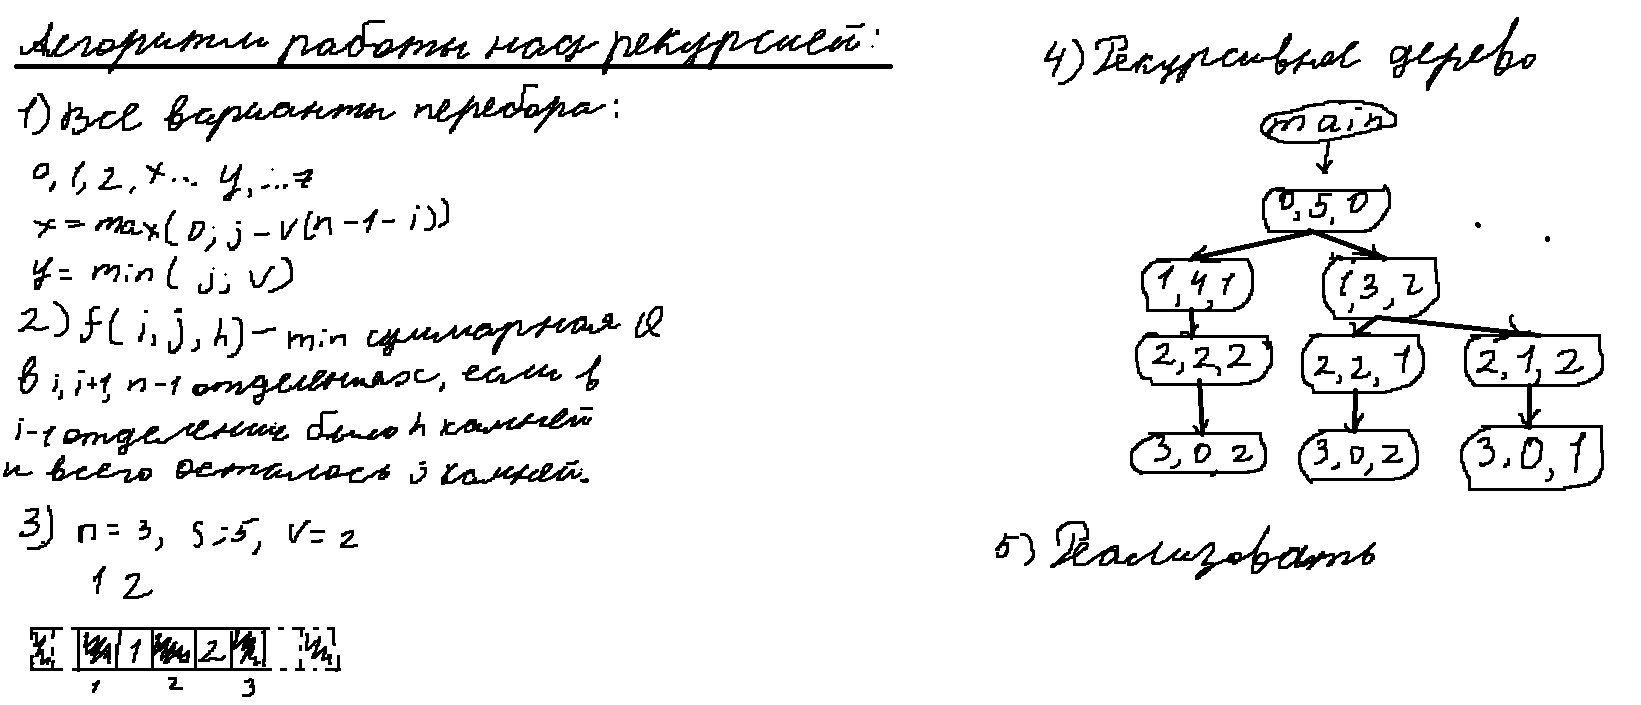 Алгоритм работы над рекурсией:
1) Все варианты перебора:
0, 1, 2, x... y, ...z
x = max(0; j - v(n-1-i))
y = min(j; v)
2) f(i, j, h) - min суммарная Q
в i, i+1, n-1 отделениях, если в
i-1 отделении было h камней
и всего осталось j камней.
3) n = 3, S = 5, v = 2
1 2
1 2
1 2 3
4) Рекурсивное дерево
main
0, 5, 0
1, 4, 1 1, 3, 2
2, 2, 2 2, 2, 1 2, 1, 2
3, 0, 2 3, 0, 2 3, 0, 1
5) Реализовать